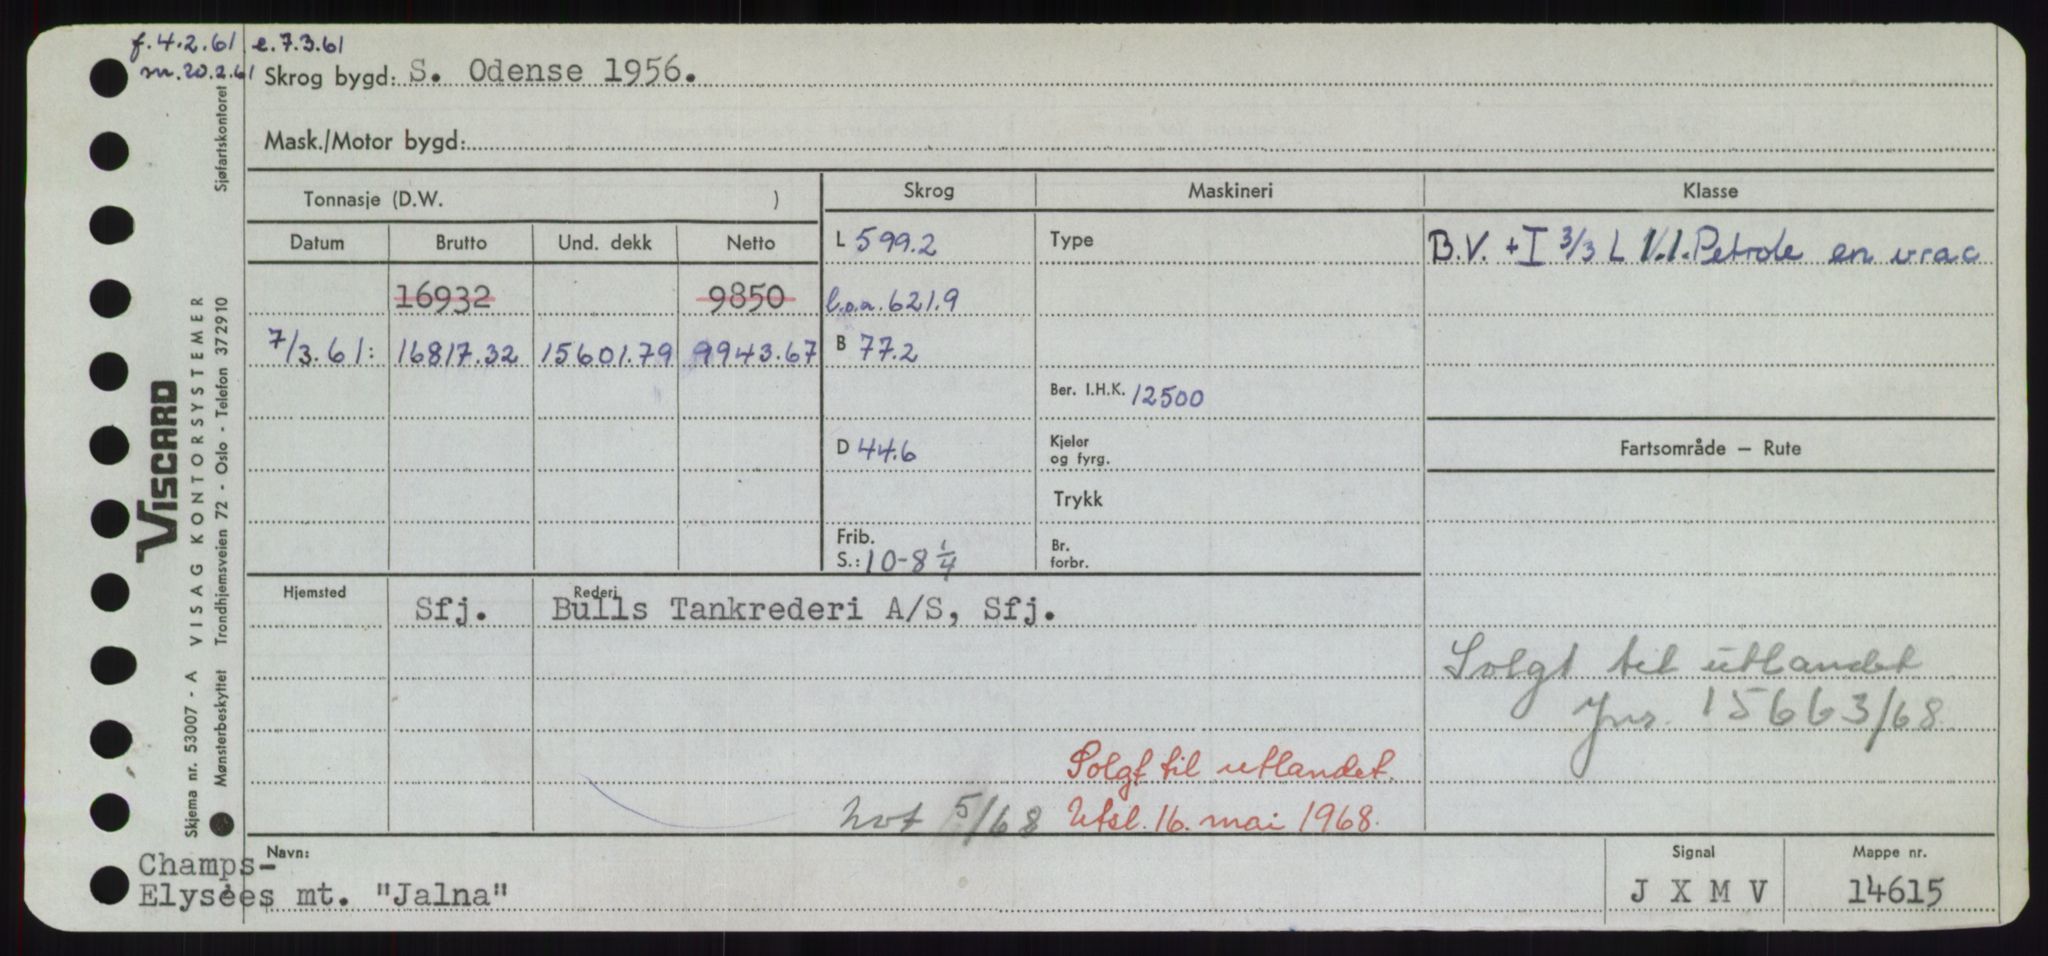 f. 4.2.61 e. 7.3.61
m. 20.2.61
Skrog bygd: S. Odense 1956.
Mask./Motor bygd:
Tonnasje (D.W. )
Skrog
Maskineri
Klasse
Datum Brutto Und. dekk Netto
L 599.2
Type
B.V. +I 3/3 L 1.1. Petrole en vrac
16932 9850
l.o.a. 621.9
7/3.61: 16817.32 15601.79 9943.67
B 77.2
Ber. I.H.K. 12500
D 44.6
Kjeler
og fyrg.
Fartsområde – Rute
Trykk
Frib.
S.: 10-8 1/4
Br.
forbr.
Hjemsted
Rederi
Sfj. Bulls Tankrederi A/S, Sfj.
Solgt til utlandet
Jnr. 15663/68
Solgt til utlandet.
not 5/68
Utsl. 16. mai 1968.
Navn:
Champs-
Elysées mt. "Jalna"
Signal
J X M V
Mappe nr.
14615
VISCARD
VISAG KONTORSYSTEMER
Skjema nr. 53007 - A
Mønsterbeskyttet Trondhjemsveien 72 - Oslo - Telefon 372910
Sjøfartskontoret